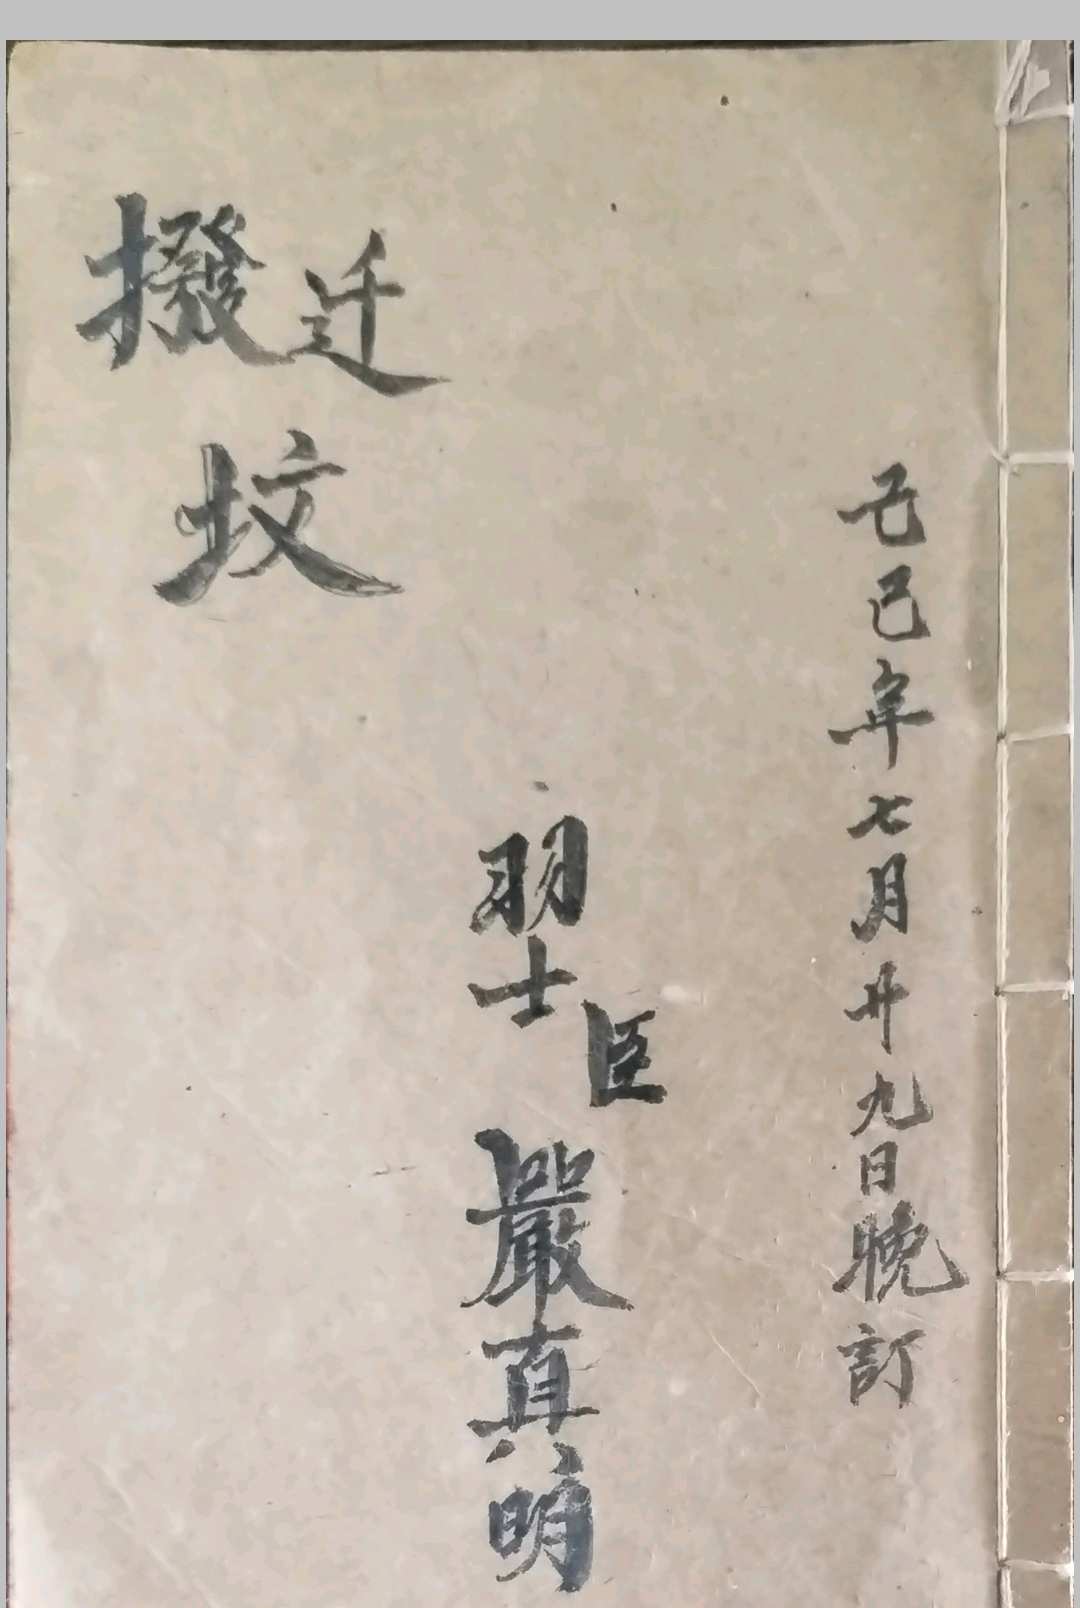 己巳年七月廿九日晚訂
羽士臣嚴真明
撥迁
坟